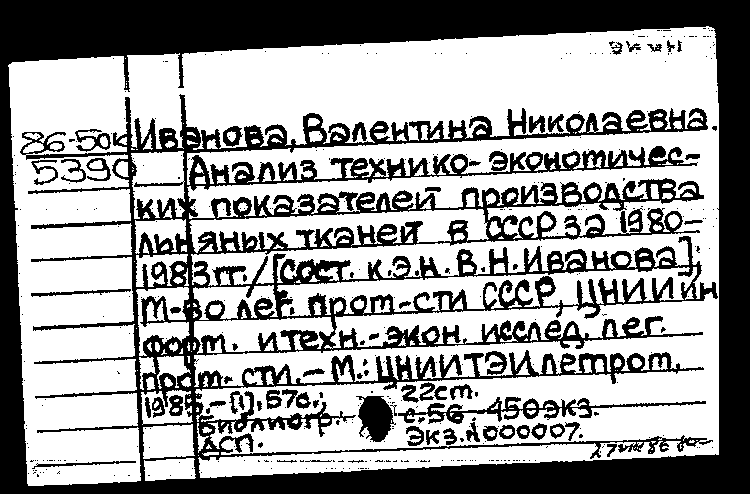 86-50к Иванова, Валентина Николаевна.
5390 Анализ технико-экономичес-
ких показателей производства
льняных тканей в СССР за 1980-
1983гг. / [сост. к.э.н. В.Н. Иванова];
М-во лег. пром-сти СССР, ЦНИИ ин
форм. и техн.-экон. исслед. лег.
пром-сти. – М.: ЦНИИТЭИлегпром,
1985. – [1], 57с.; 22см.
Библиогр.: с.56 450экз.
ДСП. Экз. №000007.